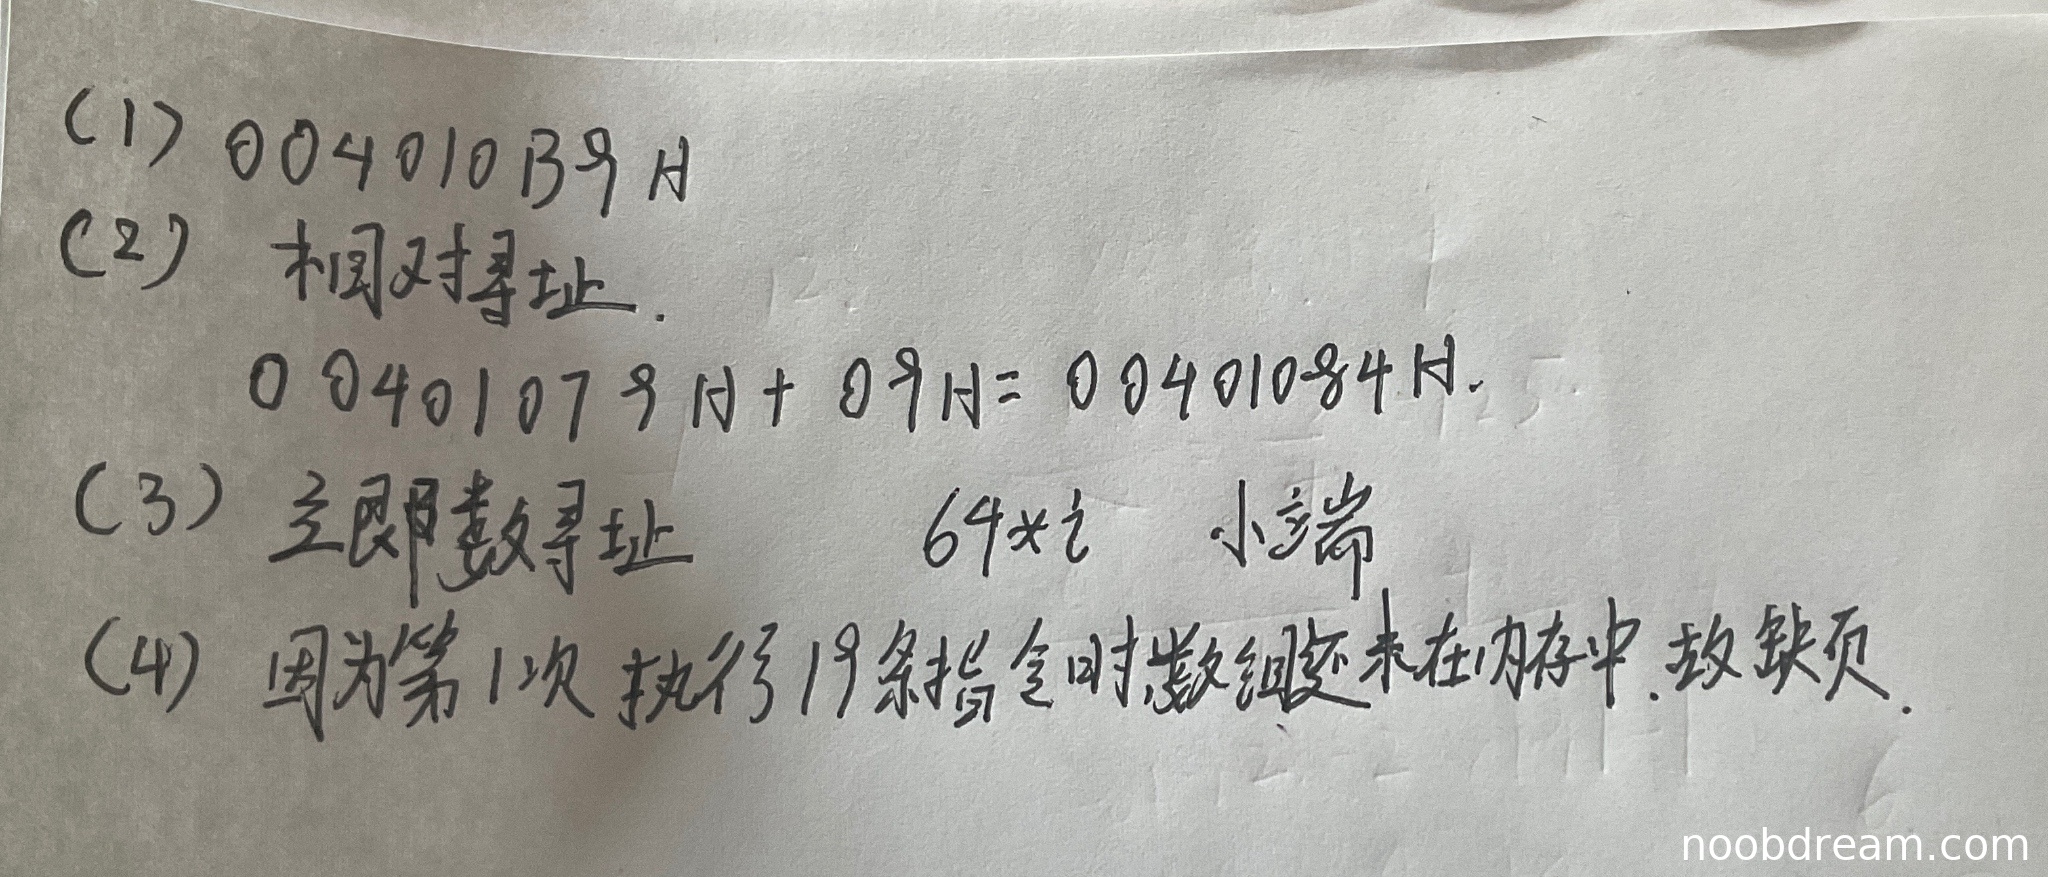 (1) 004010B9H
(2) 相对寻址.
00401079H + 09H = 00401084H.
(3) 立即数寻址 64*i 小端
(4) 因为第1次执行19条指令时,数组还未在内存中.故缺页.
noobdream.com